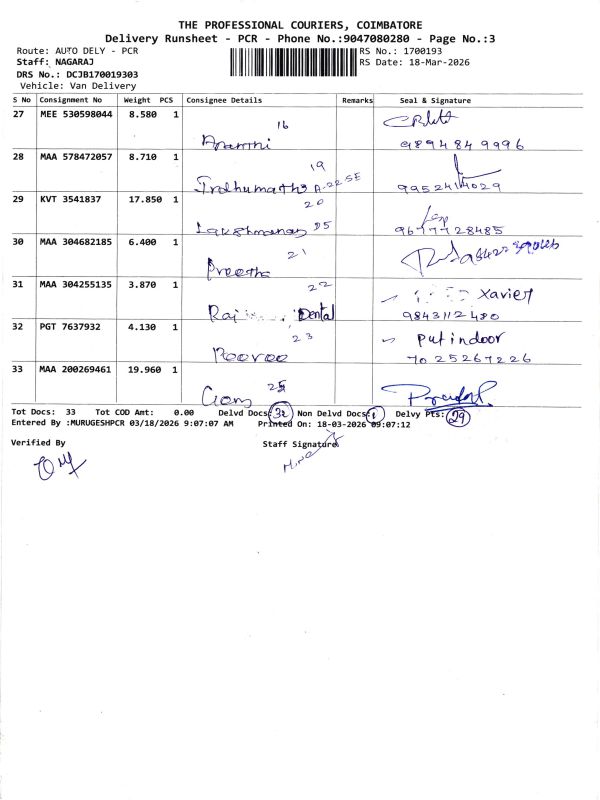 THE PROFESSIONAL COURIERS, COIMBATORE
Delivery Runsheet - PCR - Phone No.:9047080280 - Page No.:3
Route: AUTO DELY - PCR RS No.: 1700193
Staff: NAGARAJ RS Date: 18-Mar-2026
DRS No.: DCJB170019303
Vehicle: Van Delivery
S No Consignment No Weight PCS Consignee Details Remarks Seal & Signature
27 MEE 530598044 8.580 1 16
9894849996
28 MAA 578472057 8.710 1 19
Indhumathi A-22-SE 9952414029
29 KVT 3541837 17.850 1 20
Lakshmanan D5 9677728485
30 MAA 304682185 6.400 1 21
Preetha
31 MAA 304255135 3.870 1 22 Xavier
Raj Dental 9843112480
32 PGT 7637932 4.130 1 23 Put indoor
7025267226
33 MAA 200269461 19.960 1 25
Tot Docs: 33 Tot COD Amt: 0.00 Delvd Docs: 32 Non Delvd Docs: 1 Delvy Pts: 29
Entered By :MURUGESHPCR 03/18/2026 9:07:07 AM Printed On: 18-03-2026 09:07:12
Verified By Staff Signature